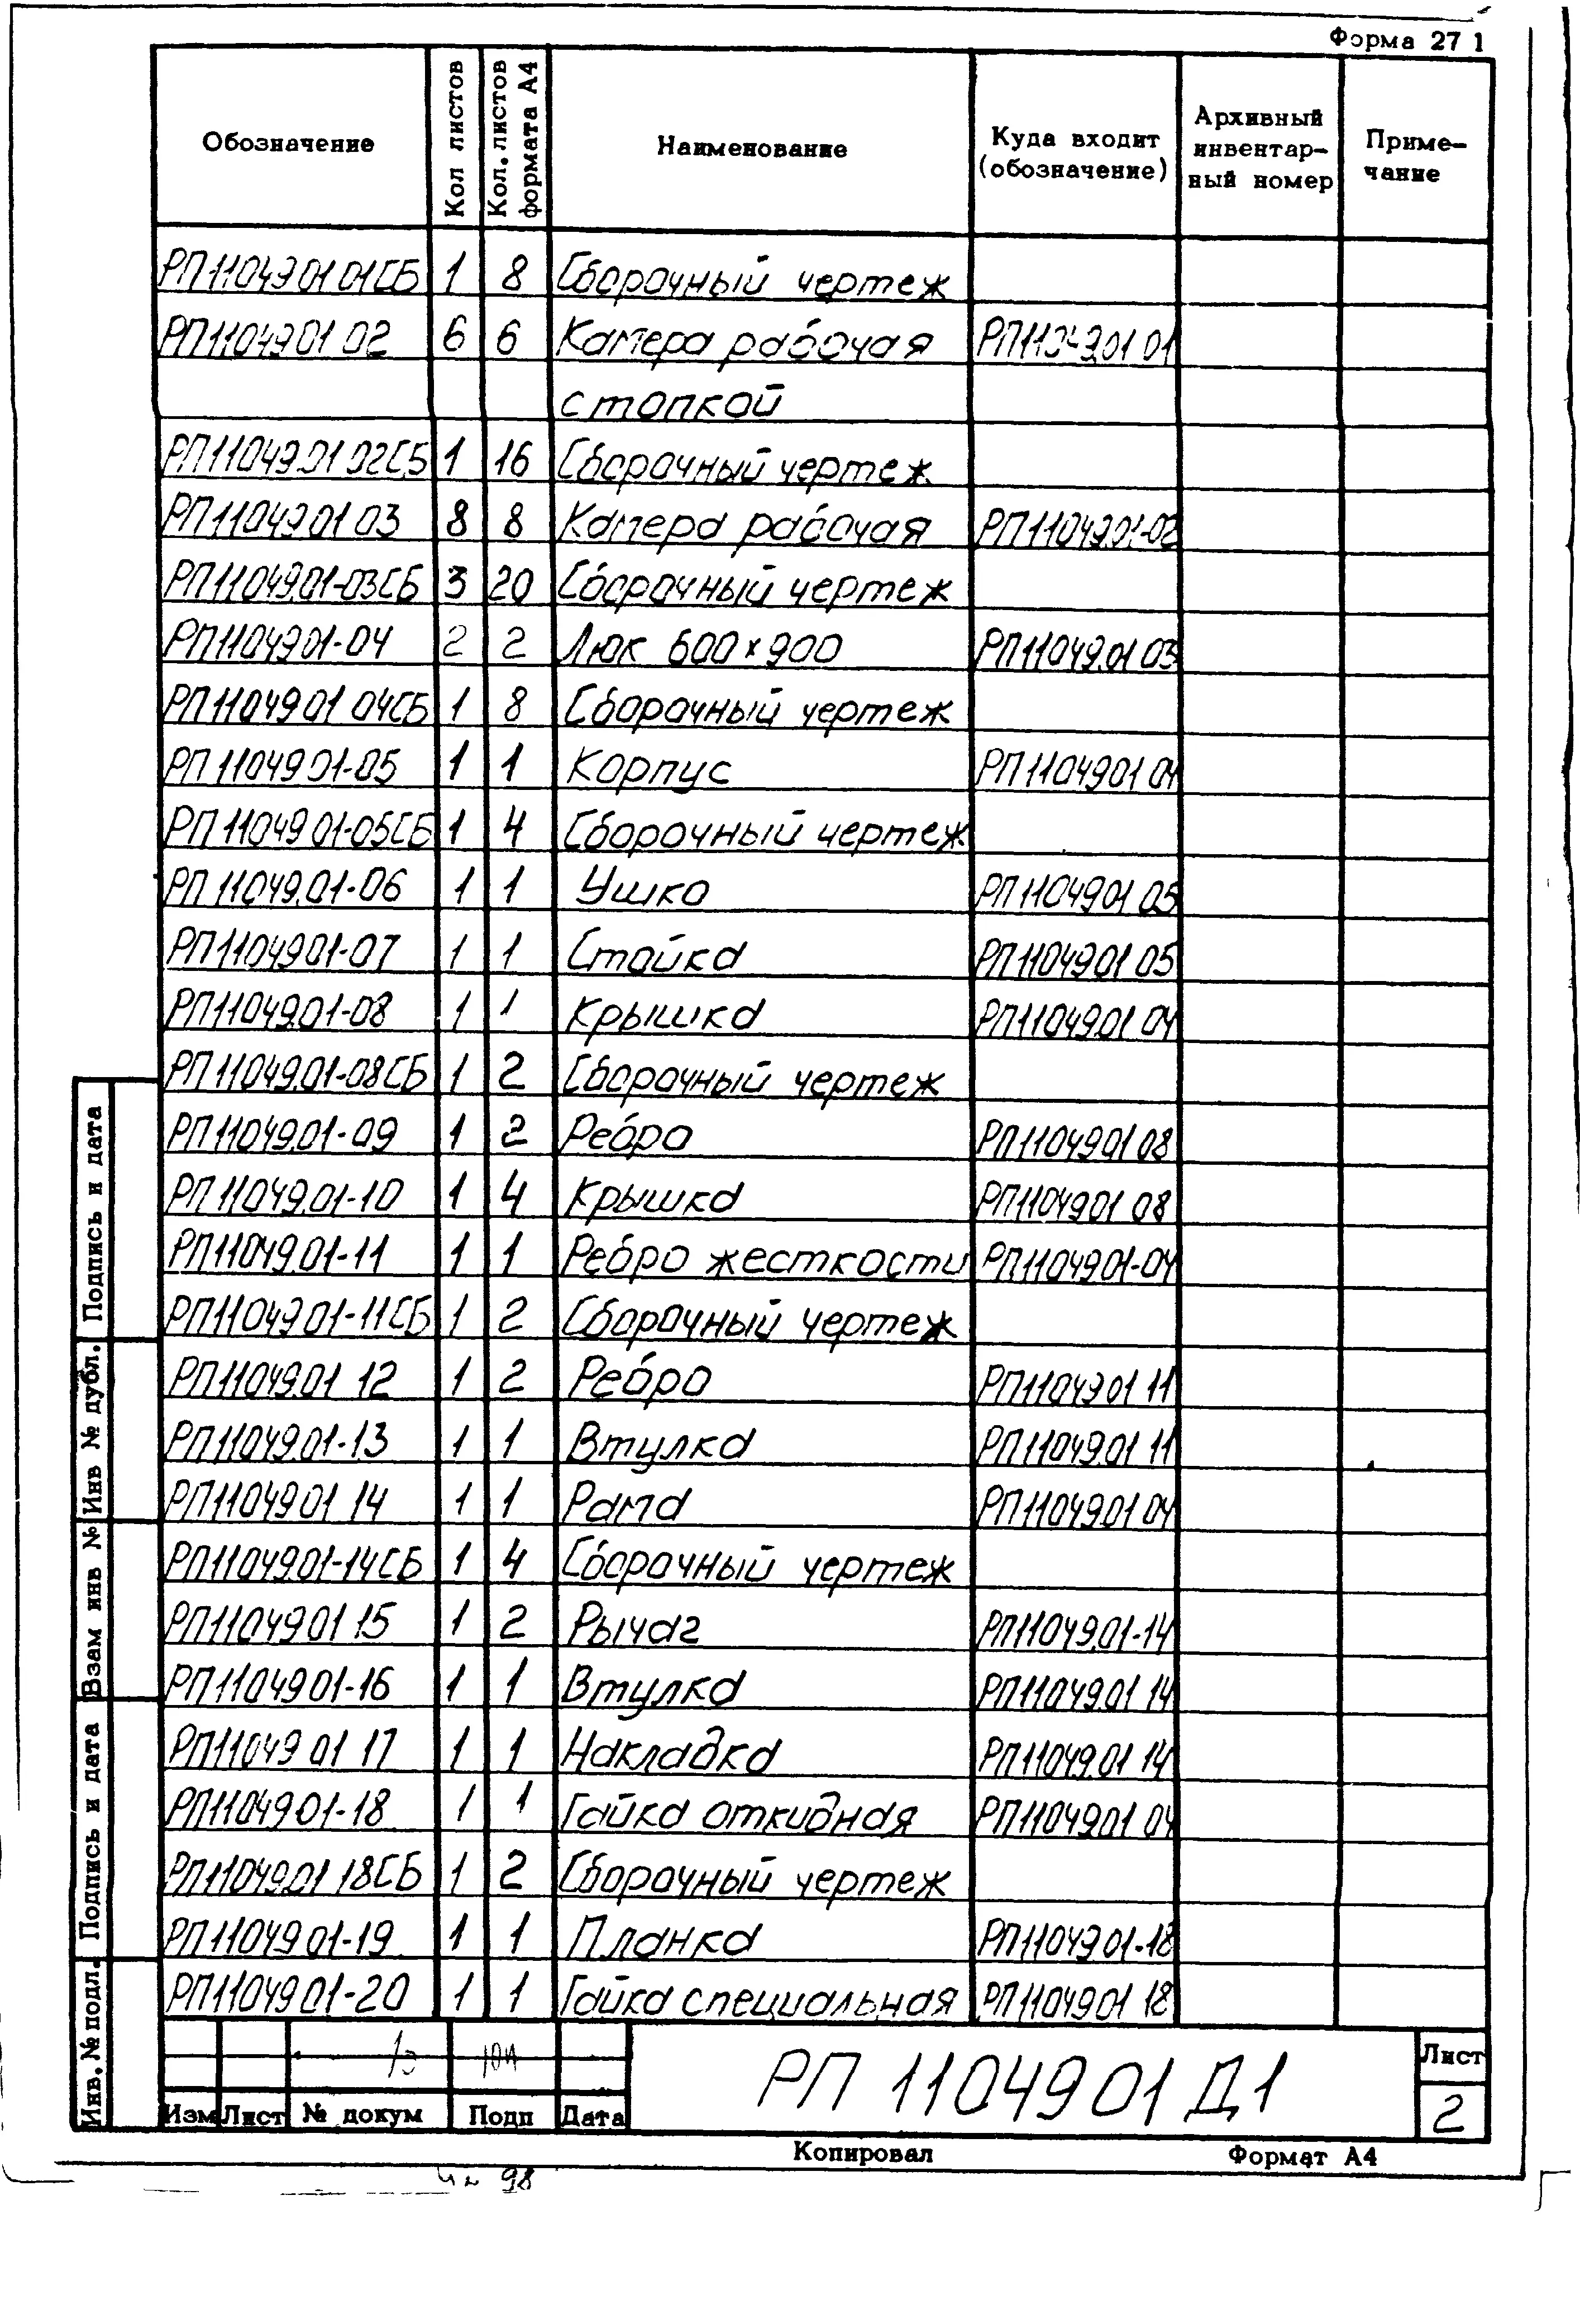 Форма 27 1
Обозначение Кол листов Кол. листов формата А4 Наименование Куда входит (обозначение) Архивный инвентар- ный номер Приме- чание
РП11049.01 01СБ 1 8 Сборочный чертеж
РП11049.01 02 6 6 Камера рабочая РП11049.01 01
с топкой
РП11049.01 02СБ 1 16 Сборочный чертеж
РП11049.01 03 8 8 Камера рабочая РП11049.01-02
РП11049.01-03СБ 3 20 Сборочный чертеж
РП11049.01-04 2 2 Люк 600×900 РП11049.01 03
РП11049.01 04СБ 1 8 Сборочный чертеж
РП11049.01-05 1 1 Корпус РП11049.01 04
РП11049.01-05СБ 1 4 Сборочный чертеж
РП11049.01-06 1 1 Ушко РП11049.01 05
РП11049.01-07 1 1 Стойка РП11049.01 05
РП11049.01-08 1 1 Крышка РП11049.01 04
РП11049.01-08СБ 1 2 Сборочный чертеж
РП11049.01-09 1 2 Ребро РП11049.01 08
РП11049.01-10 1 4 Крышка РП11049.01 08
РП11049.01-11 1 1 Ребро жесткости РП11049.01-04
РП11049.01-11СБ 1 2 Сборочный чертеж
РП11049.01 12 1 2 Ребро РП11049.01 11
РП11049.01-13 1 1 Втулка РП11049.01 11
РП11049.01 14 1 1 Рама РП11049.01 04
РП11049.01-14СБ 1 4 Сборочный чертеж
РП11049.01 15 1 2 Рычаг РП11049.01-14
РП11049.01-16 1 1 Втулка РП11049.01 14
РП11049 01 17 1 1 Накладка РП11049.01 14
РП11049.01-18 1 1 Гайка откидная РП11049.01 04
РП11049.01 18СБ 1 2 Сборочный чертеж
РП11049.01-19 1 1 Планка РП11049.01-18
РП11049.01-20 1 1 Гайка специальная РП11049.01 18
Подпись и дата
Инв № дубл.
Взам инв №
Подпись и дата
Инв. № подл.
Изм Лист № докум Подп Дата
РП 11049 01 Д1
Лист
2
Копировал Формат А4
98